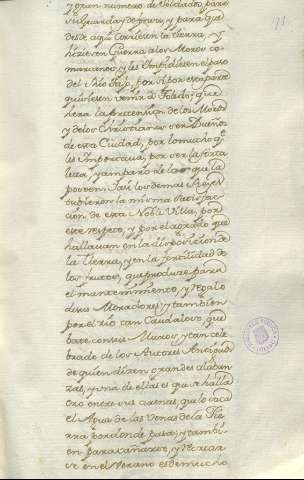 y gran numero de Soldados, para
su guarda y defensa, y para que
desde aquí corriesen la tierra, y
hiziesen Guerra a los Moros co-
marcanos, y les impidiesen el paso
del Rio Tajo, por si por esta parte
quisiesen venir a Toledo; que
era la pretension de los Moros
y de los Christianos ser Dueños
de esta Ciudad, por lo mucho q.e
les Importava, por ser la forta-
leza, y amparo de los que la
poseen. Los demas Reyes
tubieron la misma satisfac-
cion de esta Noble Villa, por
este respeto, y por el agrado que
hallavan en la disposicion de
la tierra, y en la fertilidad de
los frutos, que produze para
el mantenimiento, y regalo
de sus Moradores; y tambien
por el rio tan Caudaloso, que
bate con sus Muros, y tan cele-
brado de los Autores Antiguos
de quien dizen grandes alaban-
zas, y una de ellas es que se halla
oro entre sus arenas, que lo saca
el Agua de las venas de la Tie-
rra por donde pasa; y tambi-
en para vañarse, y recrear-
se en el Verano es de mucho